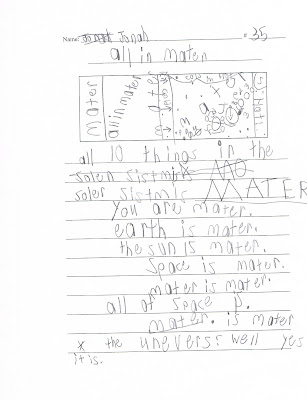 Name: Jonah # 35
all in mater
mater
all in mater
mater
all 10 things in the
soler sistmis MATER
you are mater.
earth is mater.
the sun is mater.
space is mater.
mater is mater.
all of space
mater. is mater
* the unevers? well yes
it is.